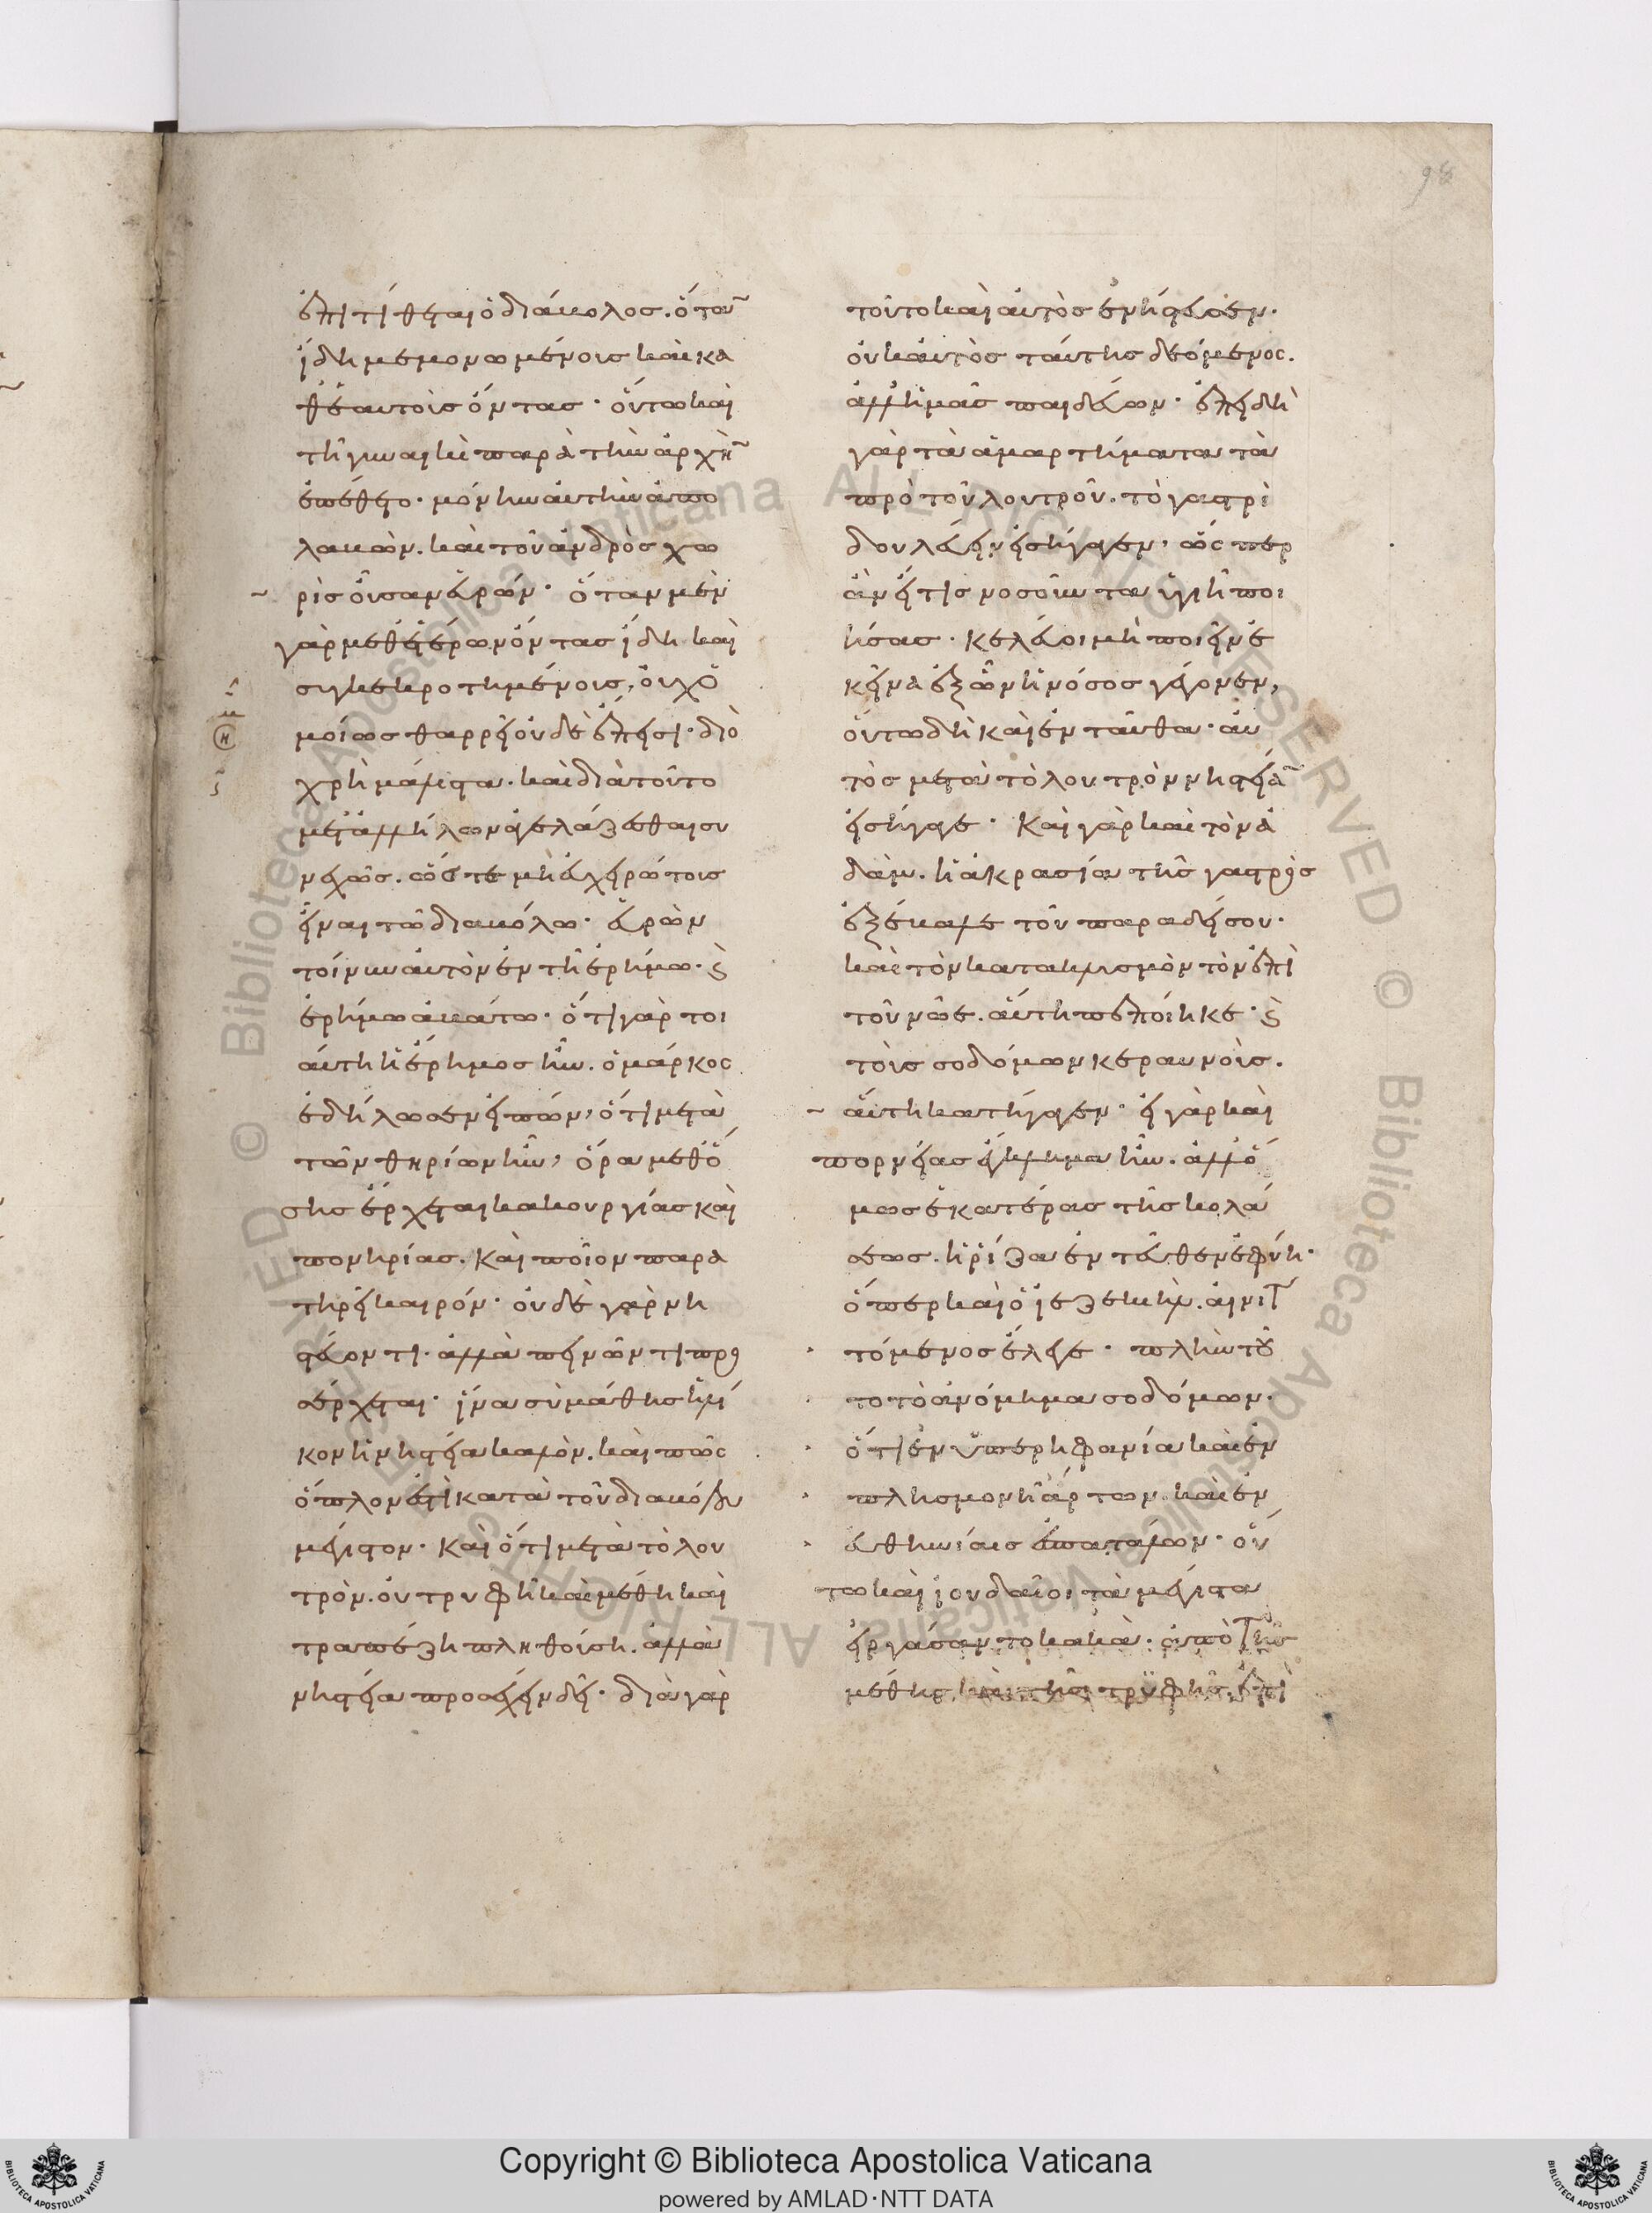 98
ἐπιτίθεται ὁ διάβολος. ὅταν
ἴδη μεμονωμένους καὶ κα
θ ἑαυτοὺς ὄντας· οὕτω καὶ
τῆ γυναικὶ παρὰ τὴν ἀρχὴν
ἐπέθετο· μόνην αὐτὴν ἀπο
λαβὼν. καὶ τοῦ ἀνδρὸς χω
ρὶς οὖσαν εὑρών· ὅταν μὲν
γὰρ μεθ ἑτέρων ὄντας ἴδη καὶ
συγκεκροτημένους, οὐχ ὁ
μοίως θαρρεῖ οὐδὲ ἔπεισι· διὸ
χρὴ μάλιστα. καὶ διὰ τοῦτο
μετ ἀλλήλων ἀγελάζεσθαι συ
νεχῶς. ὥστε μὴ εὐχειρώτους
εἶναι τῶ διαβόλω· εὑρὼν
τοίνυν αὐτὸν ἐν τῆ ἐρήμω· καὶ
ἐρήμω ἀβάτω· ὅτι γὰρ τοι
αύτη ἡ ἔρημος ἦν. ὁ μάρκος
ἐδήλωσεν εἰπών, ὅτι μετὰ
τῶν θηρίων ἦν, ὅρα μεθ ὅ
σης ἔρχεται κακουργίας καὶ
πονηρίας. καὶ ποῖον παρα
τηρεῖ καιρόν· οὐδὲ γὰρ νη
στεύοντι. ἀλλὰ πεινῶντι προσ
έρχεται· ἵνα σὺ μάθης ἡλί
κον ἡ νηστεία καλὸν. καὶ πῶς
ὅπλον ἐστὶ κατὰ τοῦ διαβόλου
μέγιστον· καὶ ὅτι μετὰ τὸ λου
τρὸν. οὐ τρυφῆ καὶ μέθη καὶ
τραπέζη πληθούση. ἀλλὰ
νηστεία προσέχειν δεῖ· διὰ γὰρ
τοῦτο καὶ αὐτὸς ἐνήστευσεν.
οὐκ αὐτὸς ταύτης δεόμενος.
ἀλλ ἡμᾶς παιδεύων· ἐπειδὴ
γὰρ τὰ ἁμαρτήματα τὰ
πρὸ τοῦ λουτροῦ. τὸ γαστρὶ
δουλεύειν εἰσήγαγεν, ὥσπερ
ἂν εἴ τις νοσοῦντα ὑγιῆ ποι
ήσας. κελεύοι μὴ ποιεῖν ἐ
κεῖνα ἐξ ὧν ἡ νόσος γέγονεν,
οὕτω δὴ καὶ ἐνταῦθα· αὐ
τὸς μετὰ τὸ λουτρὸν νηστείαν
εἰσήγαγε· Καὶ γὰρ καὶ τὸν ἀ
δὰμ. ἡ ἀκρασία τῆς γαστρὸς
ἐξέβαλε τοῦ παραδείσου.
καὶ τὸν κατακλυσμὸν τὸν ἐπὶ
τοῦ νῶε. αὕτη πεποίηκε· καὶ
τοὺς σοδόμων κεραυνοὺς.
αὕτη κατήγαγεν· εἰ γὰρ καὶ
πορνείας ἔγκλημα ἦν. ἀλλ ὅ
μως ἑκατέρας τῆς κολά
σεως. ἡ ῥίζα ἐντεῦθεν ἐφύη·
ὅπερ καὶ ὁ ἰεζεκιὴλ. αἰνιτ
τόμενος ἔλεγε· πλὴν τοῦ
το τὸ ἀνόμημα σοδόμων·
ὅτι ἐν ὑπερηφανία καὶ ἐν
πλησμονῆ ἄρτων. καὶ ἐν
εὐθηνίαις ἐσπατάλων· οὕ
τω καὶ ἰουδαῖοι τὰ μέγιστα
εἰργάσαντο κακὰ. ἀπὸ τῆς
μέθης καὶ τῆς τρυφῆς. ἐπὶ